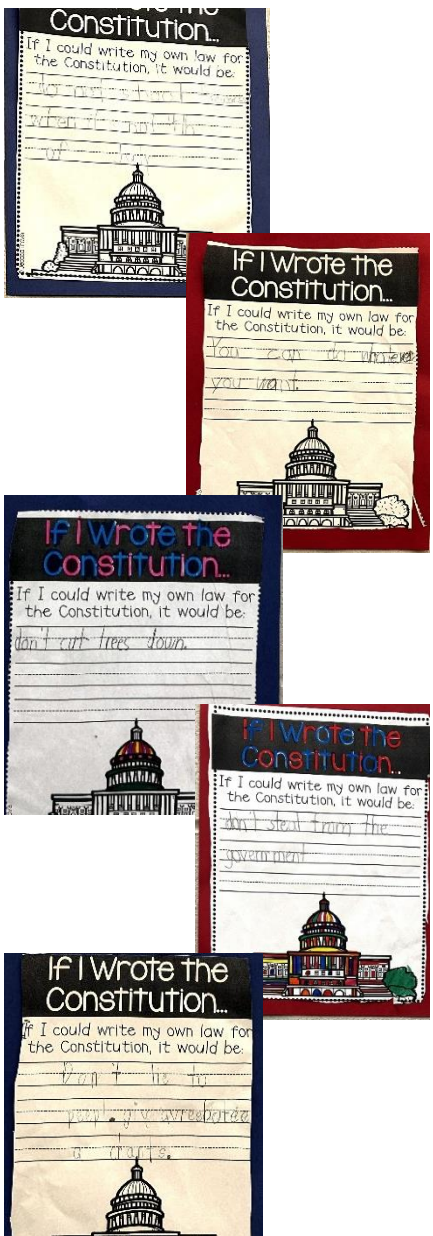 Constitution...
If I could write my own law for
the Constitution, it would be:
Do not shoot
when it not th
of July
If I Wrote the
Constitution...
If I could write my own law for
the Constitution, it would be:
You can do whatever
you want.
If I Wrote the
Constitution...
If I could write my own law for
the Constitution, it would be:
don't cut trees down.
If I Wrote the
Constitution...
If I could write my own law for
the Constitution, it would be:
don't steal from the
government
If I Wrote the
Constitution...
If I could write my own law for
the Constitution, it would be:
Don't lie to
peepl. giv
a